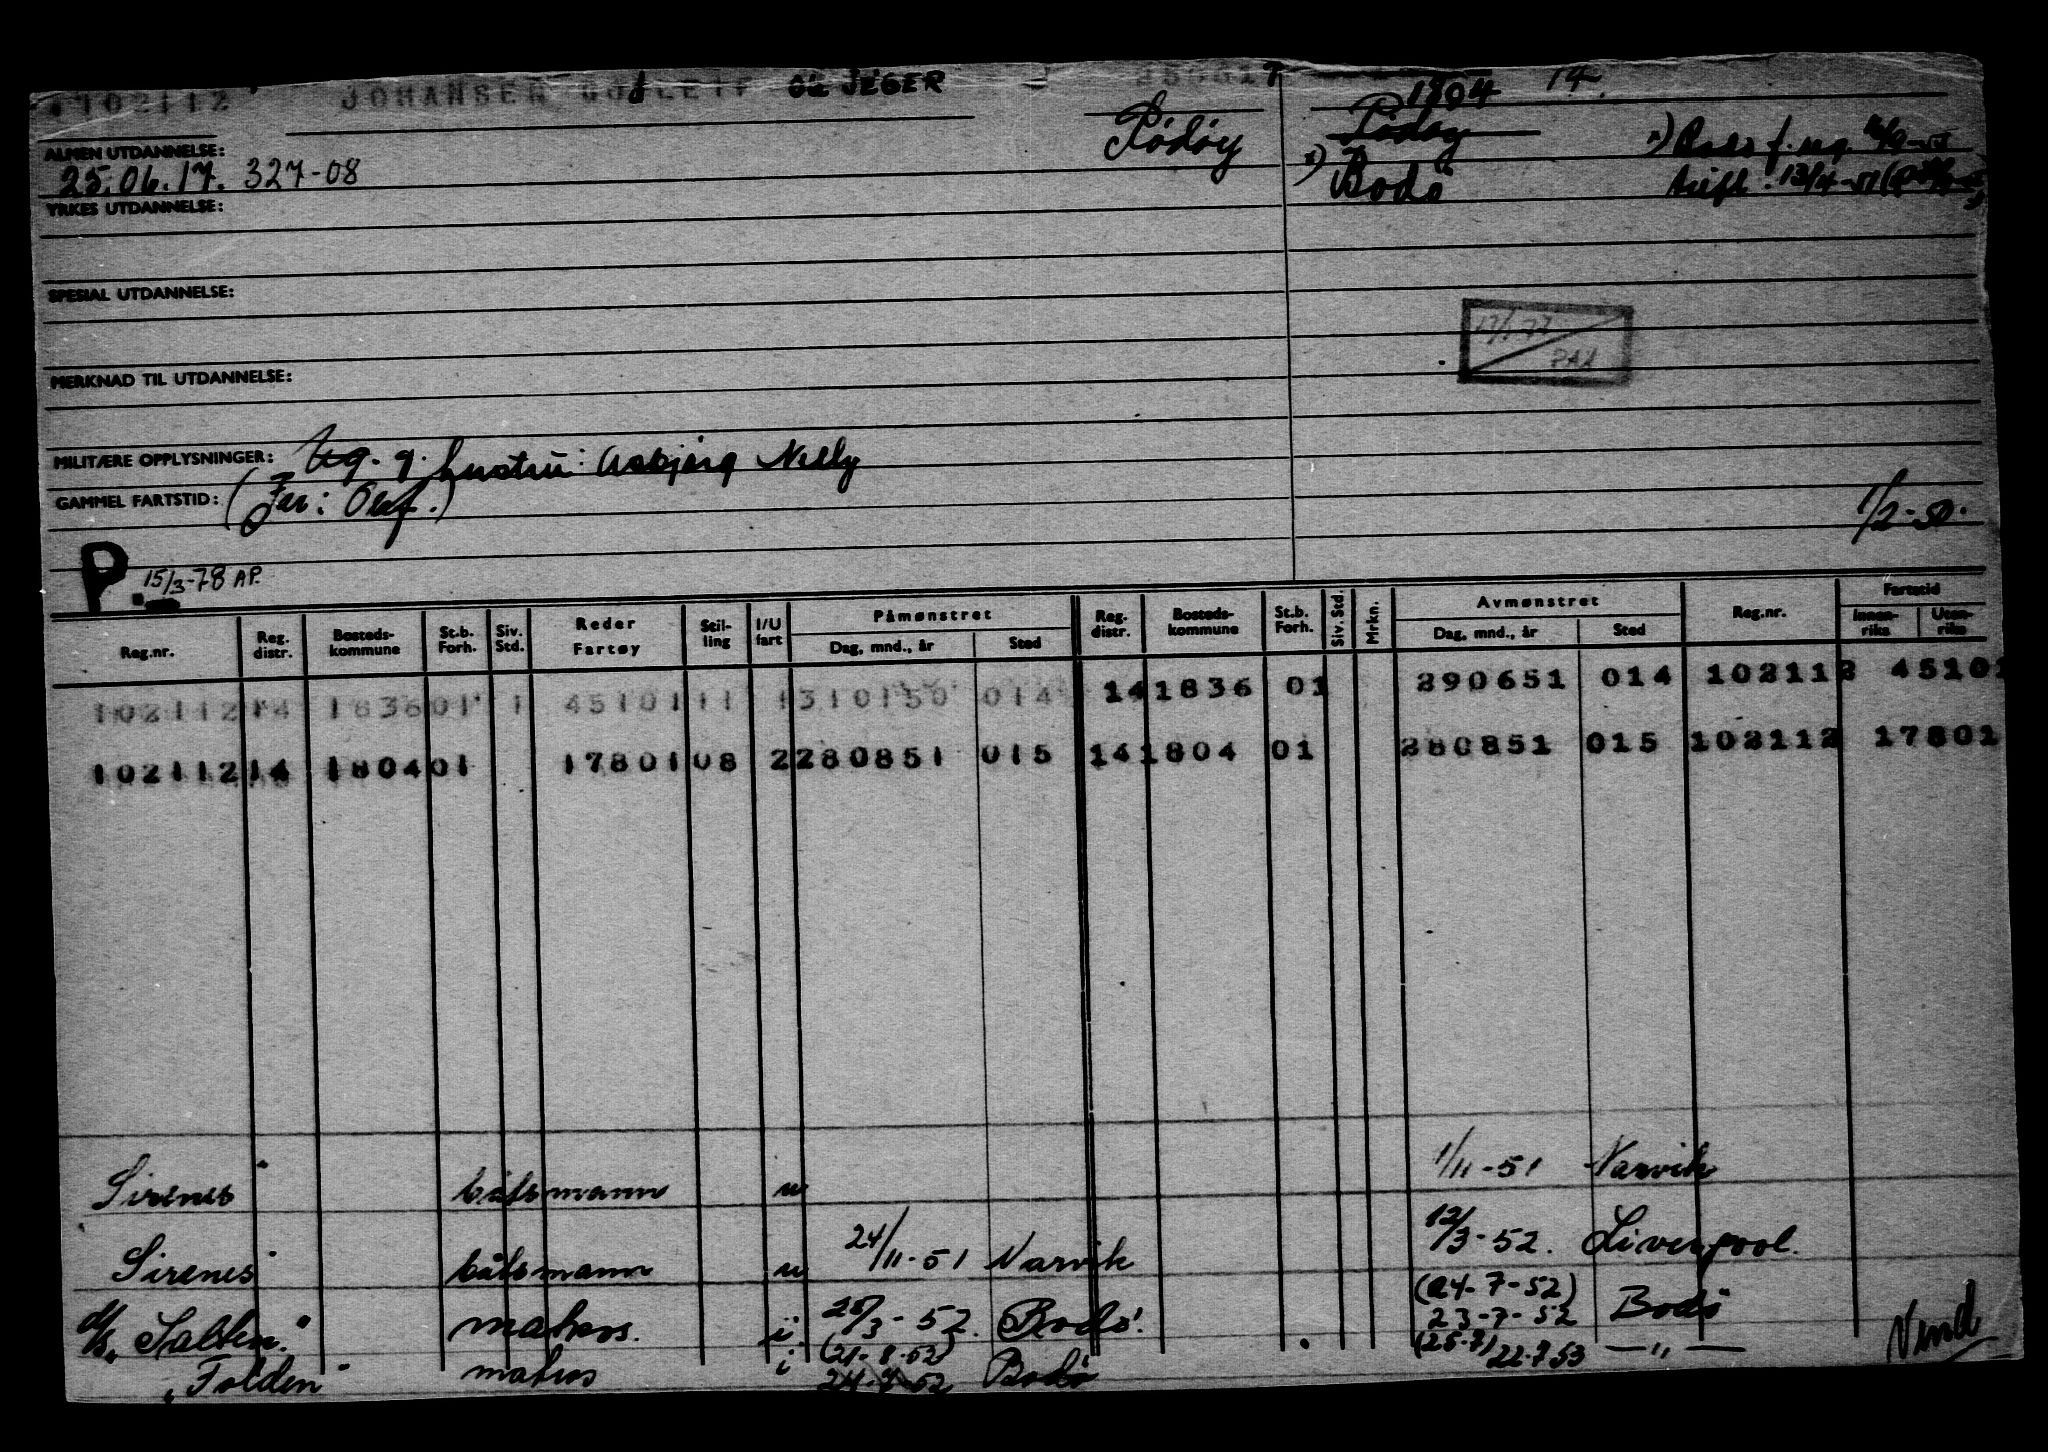 102112 JOHANSEN OL JEGER
1804 14.
Rødøy
Rødøy
ALMEN UTDANNELSE:
25.06.17. 327-08
x) Bodø
x) Bodø f. reg.
skift. 13/4-51
YRKES UTDANNELSE:
SPESIAL UTDANNELSE:
17/1 77
PAA
MERKNAD TIL UTDANNELSE:
MILITÆRE OPPLYSNINGER: Ug. g. hustru: Asbjørg Nelly
GAMMEL FARTSTID: (Far: Olaf.)
1/2-50.
P. 15/3-78 AP.
Reg.nr. Reg. distr. Bosteds-kommune St.b. Forh. Siv. Std. Reder Fartøy Stil-ling I/U fart Påmønstret Dag, mnd., år Sted Reg. distr. Bosteds-kommune St.b. Forh. Siv. Std. Mrkn. Avmønstret Dag, mnd., år Sted Reg.nr. Fartstid Innen-riks Uten-riks
102112 14 1836 01 1 45101 11 1 310150 014 14 1836 01 290651 014 102112 45101
102112 14 1804 01 17801 08 2 280851 015 14 1804 01 280851 015 102112 17801
Sirenes båtsmann u 1/11-51 Narvik
Sirenes båtsmann u 24/11-51 Narvik 12/3-52. Liverpool.
(24-7-52)
d/s. Salten." matros. i 28/3-52. Bodø. 23-7-52 Bodø
(21-8-52) (25-7)
"Folden" matros i 24-7-52 Bodø 22-7-53 —"—
Vend